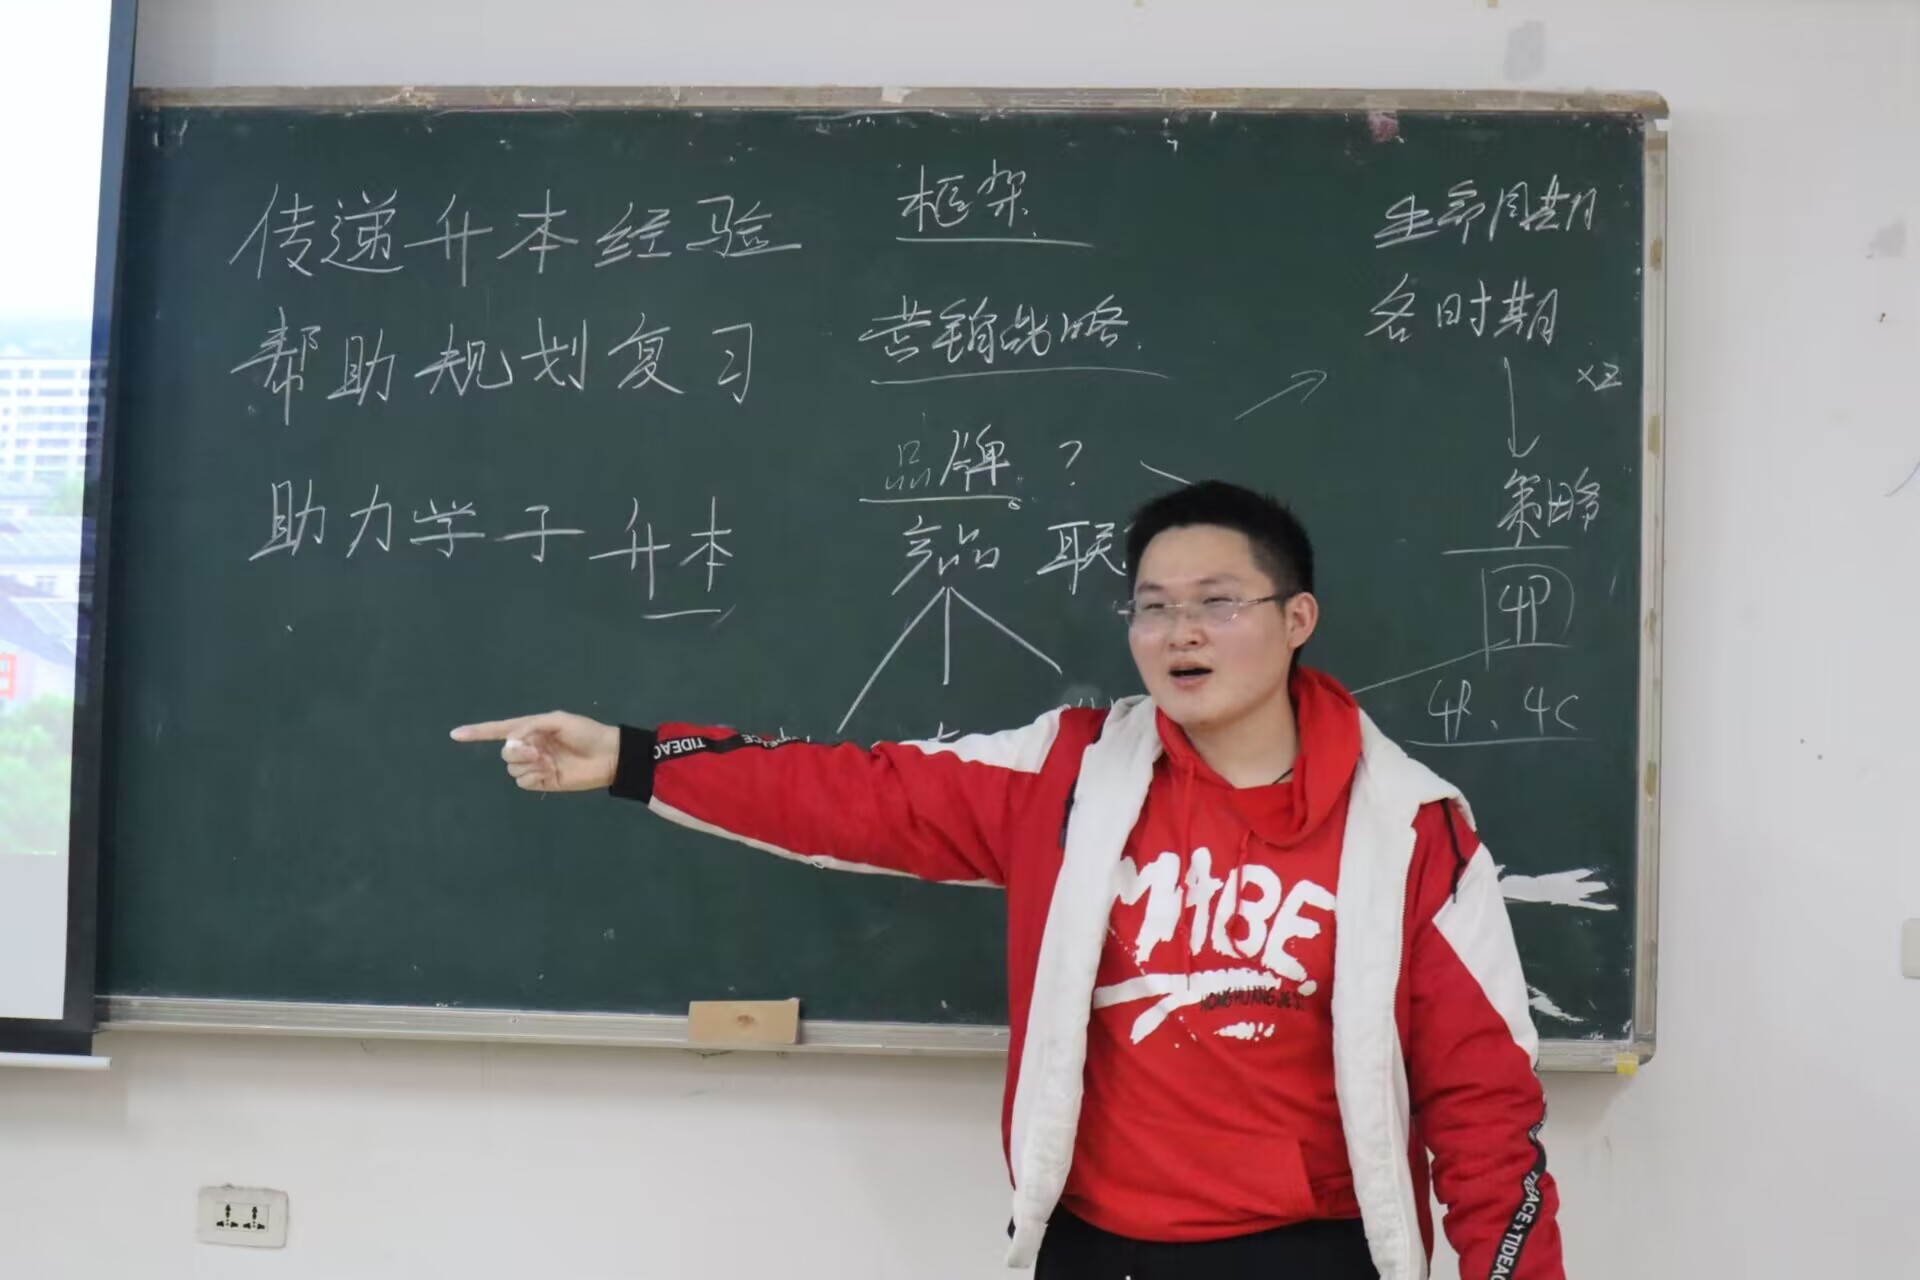 传递升本经验
帮助规划复习
助力学子升本
框架
营销战略
品牌?
产品 联
生命周期
各时期
策略
4P
4R、4C
MABE
HONGHUANG
TIDEAC
ACE x TIDEAC